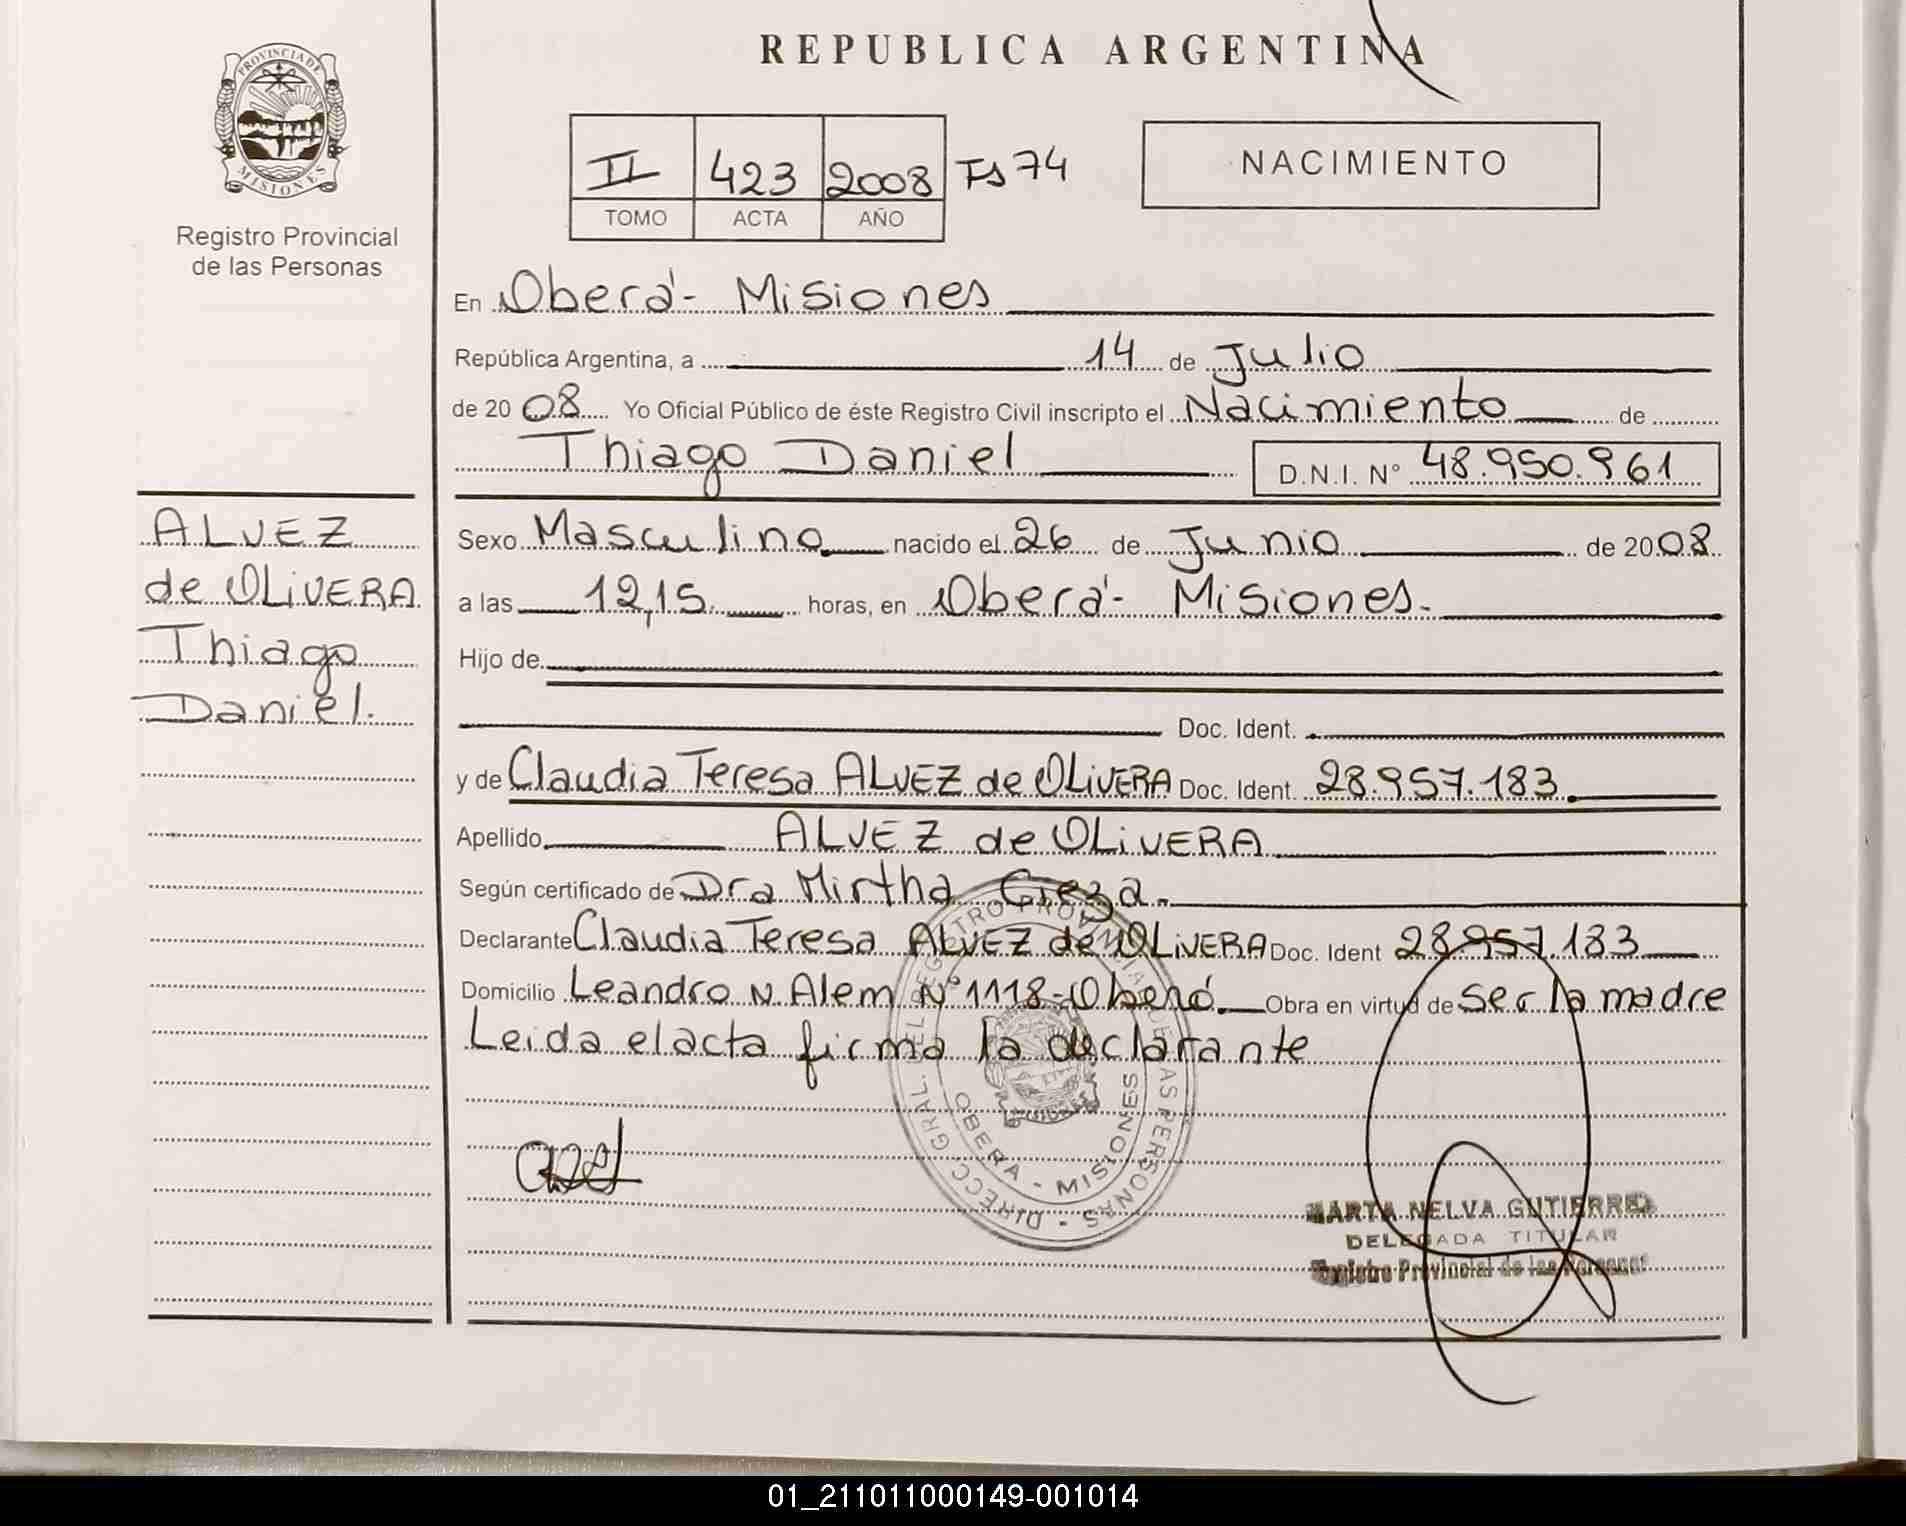 REPUBLICA ARGENTINA
PROVINCIA DE MISIONES
Registro Provincial
de las Personas
II 423 2008 Fs 74
TOMO ACTA AÑO
NACIMIENTO
En Oberá - Misiones
República Argentina, a 14 de Julio
de 20 08 Yo Oficial Público de éste Registro Civil inscripto el Nacimiento de
Thiago Daniel D.N.I. Nº 48.950.961
ALVEZ
de OLiVERA
Thiago
Daniel.
Sexo Masculino nacido el 26 de Junio de 20 08
a las 12,15 horas, en Oberá - Misiones.
Hijo de
Doc. Ident.
y de Claudia Teresa ALVEZ de OLiVERA Doc. Ident. 28.957.183
Apellido ALVEZ de OLiVERA
Según certificado de Dra Mirtha Cieza.
Declarante Claudia Teresa ALVEZ de OLiVERA Doc. Ident 28.957.183
Domicilio Leandro N. Alem Nº 1118 - Oberá. Obra en virtud de ser la madre
Leida el acta firma la declarante
DIRECC GRAL. DEL REGISTRO PROVINCIAL DE LAS PERSONAS -
OBERA - MISIONES
MARTA NELVA GUTIERREZ
DELEGADA TITULAR
Registro Provincial de las Personas
01_211011000149-001014